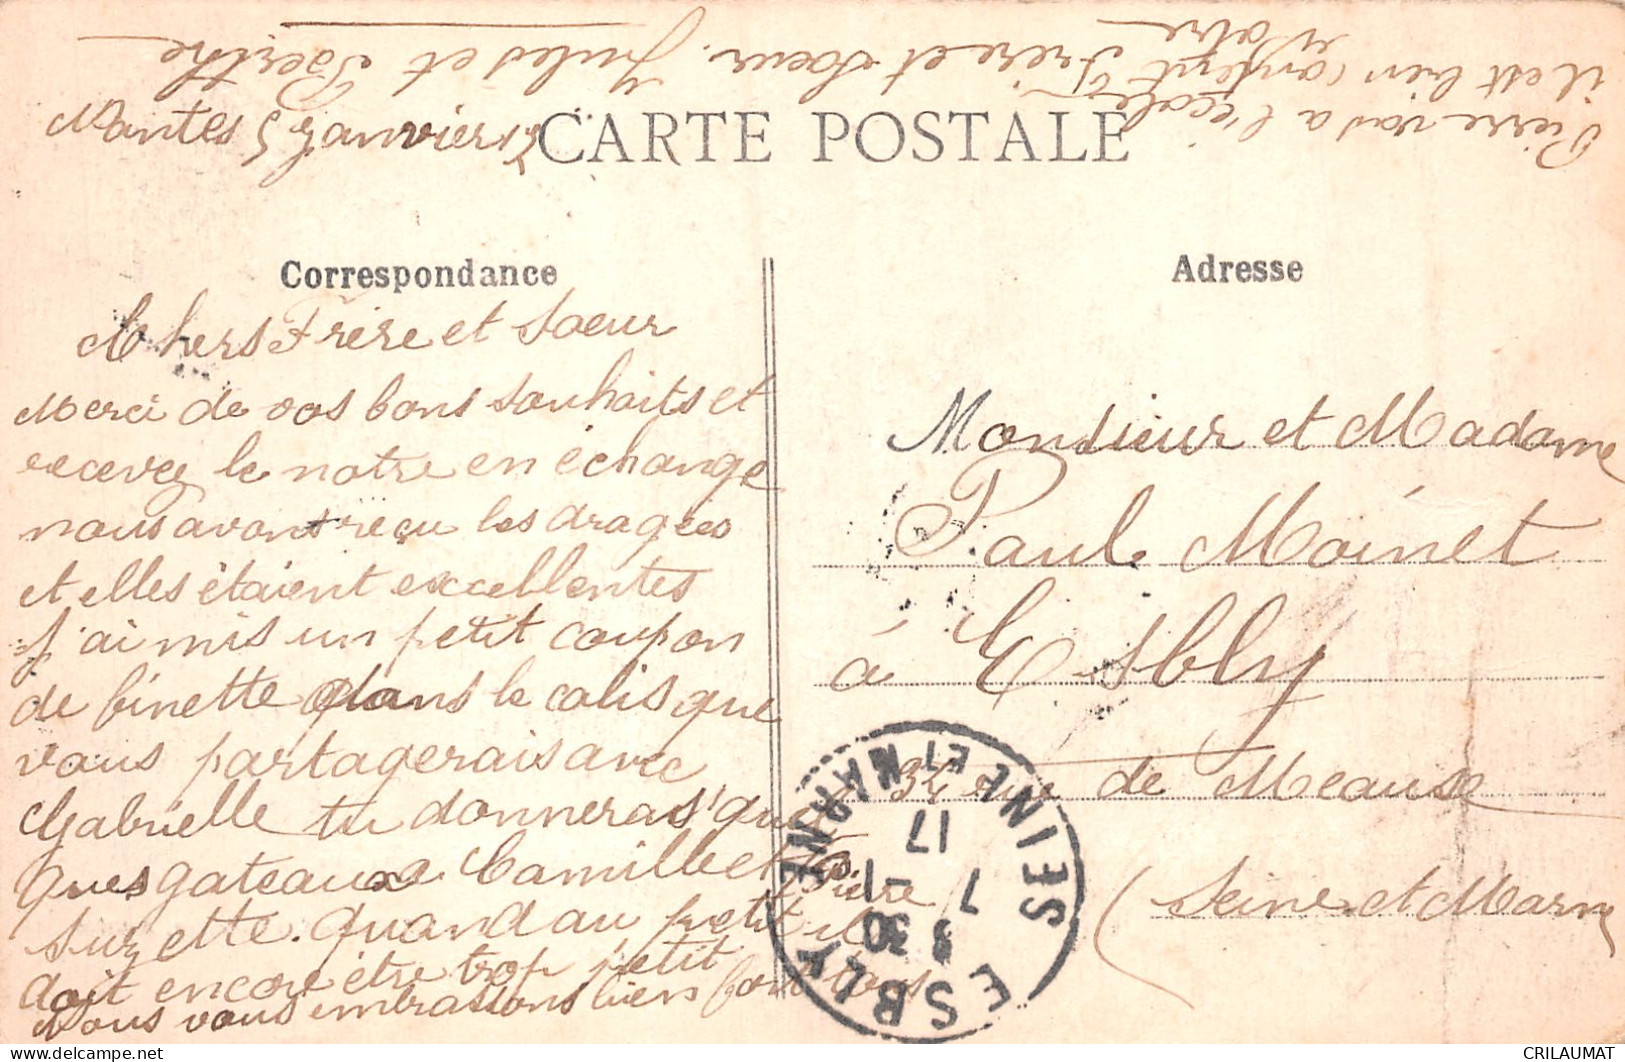 Nantes 5 Janvier 17
CARTE POSTALE
Correspondance
Chers Frère et Soeur
Merci de vos bons souhaits et
recevez le notre en échange
nous avons reçu les dragées
et elles étaient excellentes
J'ai mis un petit coupon
de finette dans le colis que
vous partagerais avec
Gabrielle tu donneras quel
ques gateaux a Camille et
Suzette. quand au petit Pierre il
doit encore être trop petit
Nous vous embrassons bien fort tous
Pierre vas a l'école
il est bien content
Votre Frère et Soeur. Jules et Berthe
Adresse
Monsieur et Madame
Paul Moinet
à Esbly
34 rue de Meause
(Seine et Marne
ESBLY SEINE ET MARNE
3 30
7 -1
17
CRILAUMAT